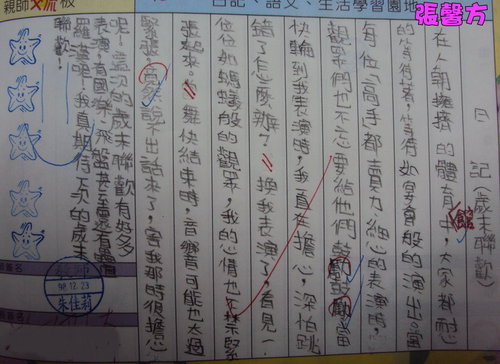 親師交流板
日記、語文、生活學習園地
張馨方
日記(歲末聯歡)
在人朝擁擠的體育館中，大家都耐心
的等待著，等待如宴會般的演出。當
每位「高手」都賣力、細心的表演時，
觀眾們也不忘要給他們鼓勵鼓勵當
快輪到我表演時，我真在擔心，深怕跳
錯了怎麼辦？換我表演了，看見一
位位如螞蟻般的觀眾，我的心情也不禁緊
張起來。舞快結束時，音響可能也太過
緊張，竟然說不出話來了，害我那時很擔心
呢！這次的歲末聯歡有好多
表演，有國樂、飛盤甚至還有電
羅漢呢！我真期待下次的歲末
聯歡！
教師
98.12.23
朱佳莉